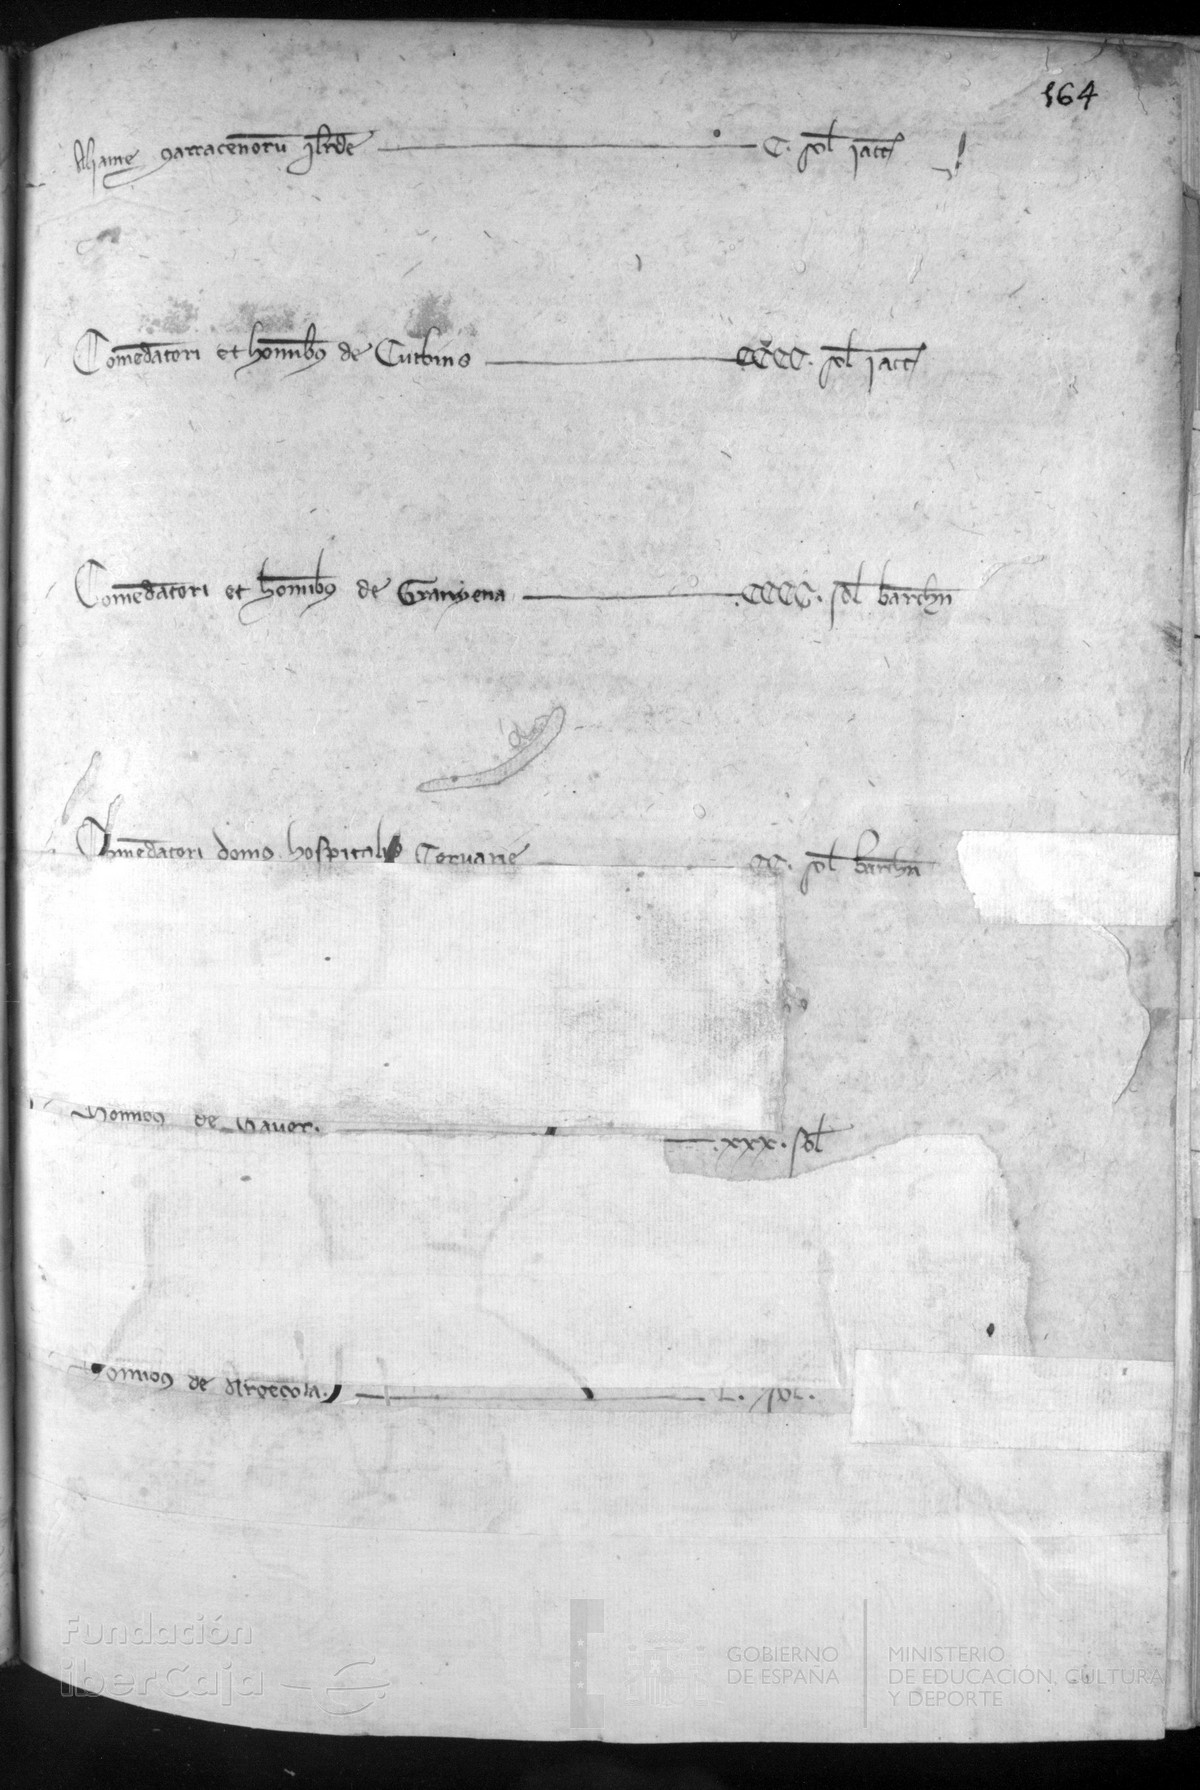 164
Aljame sarracenoru Ilrde — C. sol iacc
Comedatori et hominibus de Curbins — CCCC. sol iacc
Comedatori et hominibus de Granyena — .CCCC. sol barchn
Comedatori domus hospitalis Cervarie — CC. sol barchn
Hominibus de Gaver. — .xxx. sol
Hominibus de — L. sol.
Fundación
iberCaja
GOBIERNO
DE ESPAÑA
MINISTERIO
DE EDUCACIÓN, CULTURA
Y DEPORTE